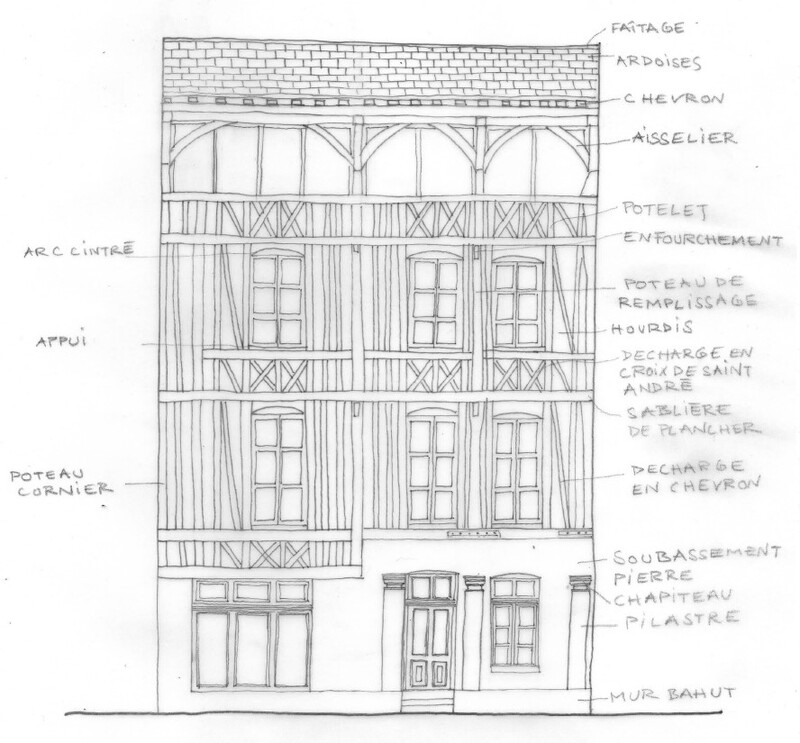 FAÎTAGE
ARDOISES
CHEVRON
AISSELIER
POTELET
ENFOURCHEMENT
ARC CINTRÉ
POTEAU DE
REMPLISSAGE
HOURDIS
APPUI
DECHARGE EN
CROIX DE SAINT
ANDRÉ
SABLIÈRE
DE PLANCHER
POTEAU
CORNIER
DECHARGE
EN CHEVRON
SOUBASSEMENT
PIERRE
CHAPITEAU
PILASTRE
MUR BAHUT